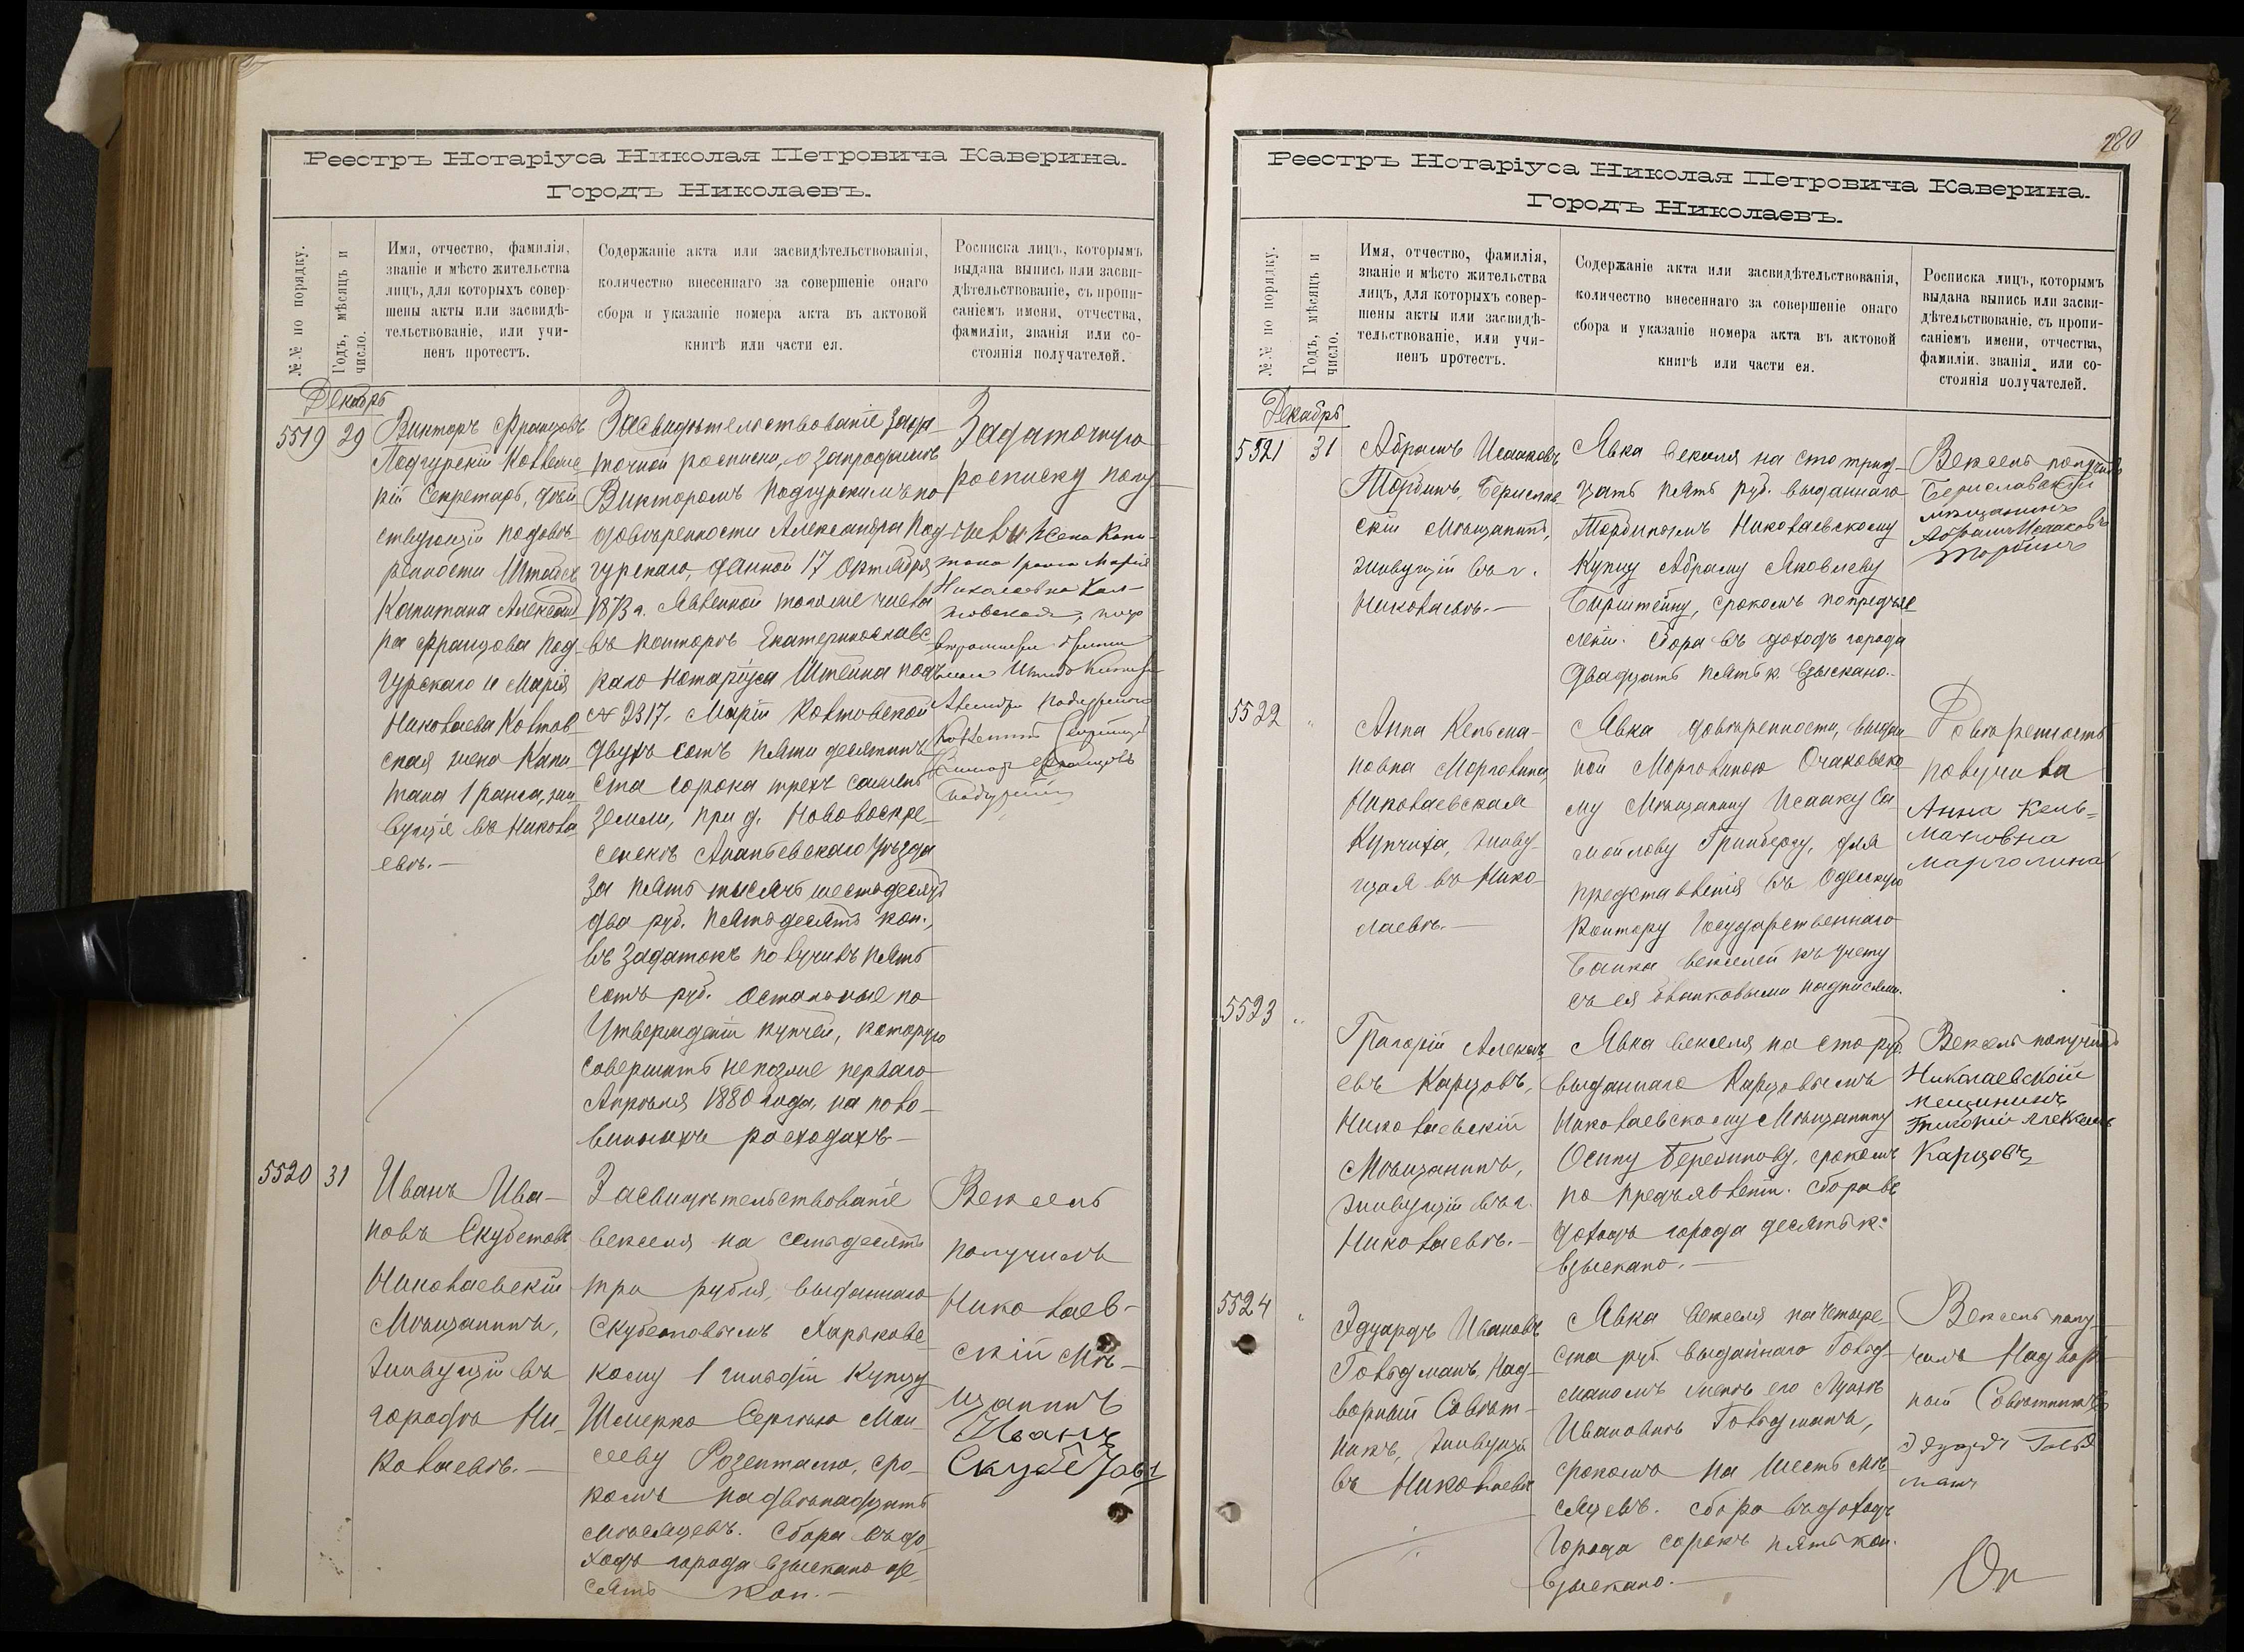 Реестръ Нотаріуса Николая Петровича Каверина.
Городъ Николаевъ.
№№ по порядку.
Годъ, мѣсяцъ и
число.
Имя, отчество, фамилія,
званіе и мѣсто жительства
лицъ, для которыхъ совер-
шены акты или засвидѣ-
тельствованіе, или учи-
ненъ протестъ.
Содержаніе акта или засвидѣтельствованія,
количество внесеннаго за совершеніе онаго
сбора и указаніе номера акта въ актовой
книгѣ или части ея.
Росписка лицъ, которымъ
выдана выпись или засви-
дѣтельствованіе, съ пропи-
саніемъ имени, отчества,
фамиліи, званія или со-
стоянія получателей.
Декабрь
5519
29
Викторъ Францовъ
Подгурскій Коллежс
кій Секретарь, дѣй
ствующій по довѣ-
ренности Штабсъ
Капитана Александ
ра Францова Под-
гурскаго и Марія
Николаева Колтов
ская жена Капи-
тана 1 ранга, жи
вущіе въ Никола
евѣ.—
Засвидѣтельствованіе зада
точной росписки, о запродажѣ
Викторомъ Подгурскимъ по
довѣренности Александра Под-
гурскаго, данной 17 Октября
1873 г. Явленной того же числа
въ конторѣ Екатеринославс
каго Нотаріуса Штейна подъ
№ 2317. Маріи Колтовской
двухъ сотъ пяти десятинъ
ста сорока трехъ сажень
земли, при д. Нововоскре-
сенскѣ Ананьевскаго Уѣзда
за пять тысячъ шестьдесятъ
два руб. пятьдесятъ коп.,
въ задатокъ получивъ пять
сотъ руб. остальные по
утвержденіи купчей, которую
совершить не позже перваго
Апрѣля 1880 года, на поло-
винныхъ расходахъ—
Задаточную
росписку полу-
чевы жена Капи-
тана 1 ранга Марія
Николаевна Кол-
товская, по до
Подгурскаго
Подгурскій
5520
31
Иванъ Ива-
новъ Скубетовъ
Николаевскій
Мѣщанинъ,
живущій въ
городѣ Ни-
колаевѣ.—
Засвидѣтельствованіе
векселя на семьдесятъ
три рубля, выданнаго
Скубетовымъ Харьковс
кому 1 гильдіи купцу
Шмерко Сергѣю Мои-
сееву Розенталю, сро-
комъ на двѣнадцать
мѣсяцевъ. Сбора въ до-
ходъ города взыскано де-
сять коп.—
Вексель
получилъ
Николаев-
скій Мѣ-
щанинъ
Иванъ
Скубетовъ
280
Реестръ Нотаріуса Николая Петровича Каверина.
Городъ Николаевъ.
№№ по порядку.
Годъ, мѣсяцъ и
число.
Имя, отчество, фамилія,
званіе и мѣсто жительства
лицъ, для которыхъ совер-
шены акты или засвидѣ-
тельствованіе, или учи-
ненъ протестъ.
Содержаніе акта или засвидѣтельствованія,
количество внесеннаго за совершеніе онаго
сбора и указаніе номера акта въ актовой
книгѣ или части ея.
Росписка лицъ, которымъ
выдана выпись или засви-
дѣтельствованіе, съ пропи-
саніемъ имени, отчества,
фамиліи. званія. или со-
стоянія получателей.
Декабрь
5521
31
Абрамъ Исааковъ
Торбинъ, Берислав
скій Мѣщанинъ,
живущій въ г.
Николаевѣ.—
Явка векселя на сто трид-
цать пять руб. выданнаго
Торбинымъ Николаевскому
Купцу Абраму Яковлеву
Бирштейну, срокомъ по предъяв
леніи. Сбора въ доходъ города
двадцать пять к. взыскано.—
Вексель получилъ
Бериславскій
мѣщанинъ
Абрамъ Исааковъ
Торбинъ
5522
"
Анна Кельма-
новна Марголина,
Николаевская
Купчиха, живу-
щая въ Нико-
лаевѣ.—
Явка довѣренности, выдан
ной Марголиною Очаковско
му Мѣщанину Исааку Са
мойлову Гринбергу, для
представленія въ Одесскую
Контору Государственнаго
Банка векселей къ учету
съ ея бланковыми надписями.
Довѣренность
получила
Анна Кель=
мановна
Марголина
5523
"
Григорій Алексѣ-
евъ Карцовъ,
Николаевскій
Мѣщанинъ,
живущій въ г.
Николаевѣ.—
Явка векселя на сто руб.
выданнаго Карцовымъ
Николаевскому Мѣщанину
Осипу Березинову, срокомъ
по предъявленіи. Сбора въ
доходъ города десять к:
взыскано.—
Вексель получилъ
Николаевской
мещининъ
Григорій Алексѣевъ
Карцовъ
5524
"
Эдуардъ Ивановъ
Гольдманъ, Над-
ворный Совѣт-
никъ, живущій
въ Николаевѣ
Явка векселя на четыре-
ста руб. выданнаго Гольд-
маномъ женѣ его Луизѣ
Ивановнѣ Гольдманъ,
срокомъ на шесть мѣ-
сяцевъ. Сбора въ доходъ
города сорокъ пять коп.
взыскано.—
Вексель полу-
чилъ Надвор-
ный Совѣтникъ
Эдуардъ Гольд
манъ